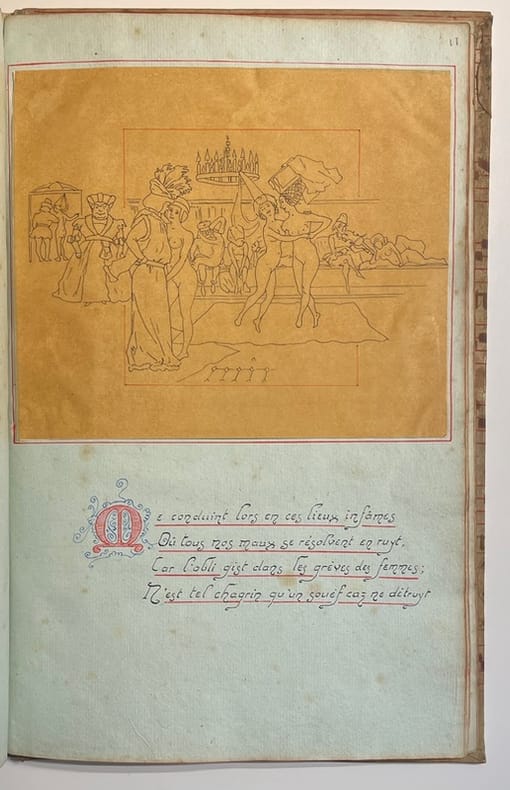 11
Me conduint lors en ces lieux infâmes
Où tous nos maux se résolvent en ruyt,
Car l'obli gist dans les grèves des femmes;
N'est tel chagrin qu'un souëf caz ne détruyt